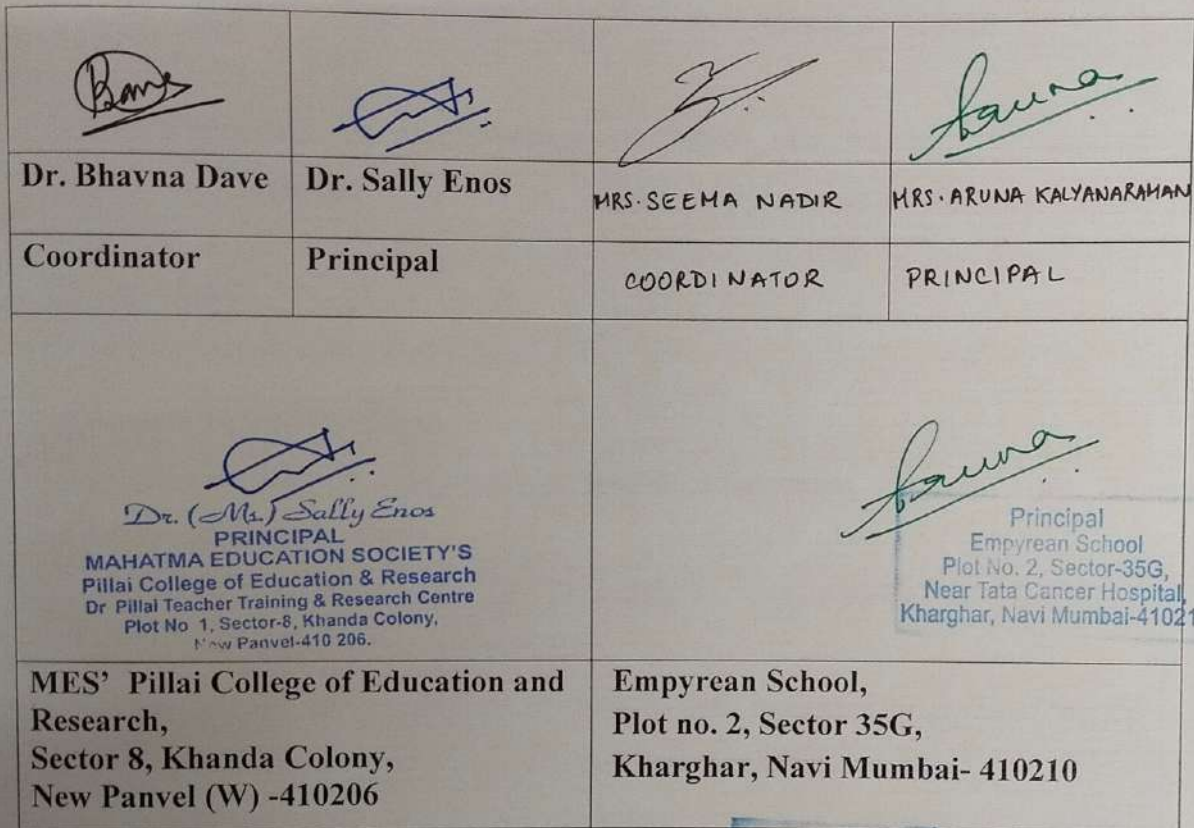 Dr. Bhavna Dave
Dr. Sally Enos
MRS. SEEMA NADIR
MRS. ARUNA KALYANARAMAN
Coordinator
Principal
COORDINATOR
PRINCIPAL
Aruna
Dr. (Ms.) Sally Enos
PRINCIPAL
MAHATMA EDUCATION SOCIETY'S
Pillai College of Education & Research
Dr Pillai Teacher Training & Research Centre
Plot No 1, Sector-8, Khanda Colony,
New Panvel-410 206.
Aruna
Principal
Empyrean School
Plot No. 2, Sector-35G,
Near Tata Cancer Hospital,
Kharghar, Navi Mumbai-41021
MES' Pillai College of Education and
Research,
Sector 8, Khanda Colony,
New Panvel (W) -410206
Empyrean School,
Plot no. 2, Sector 35G,
Kharghar, Navi Mumbai- 410210